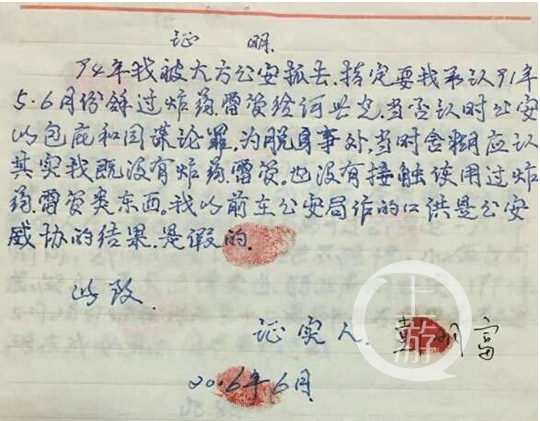 证 明.
94年我被大方公安抓去.指定要我承认91年
5.6月份给过炸药.雷管给何兴先.当否认时公安
以包庇和同谋论罪.为脱身事外.当时含糊应认
其实我既没有炸药.雷管.也没有接触使用过炸
药.雷管类东西.我以前在公安局作的口洪是公安
威协的结果.是假的.
此致.
证实人. 富
6年6月.
上游